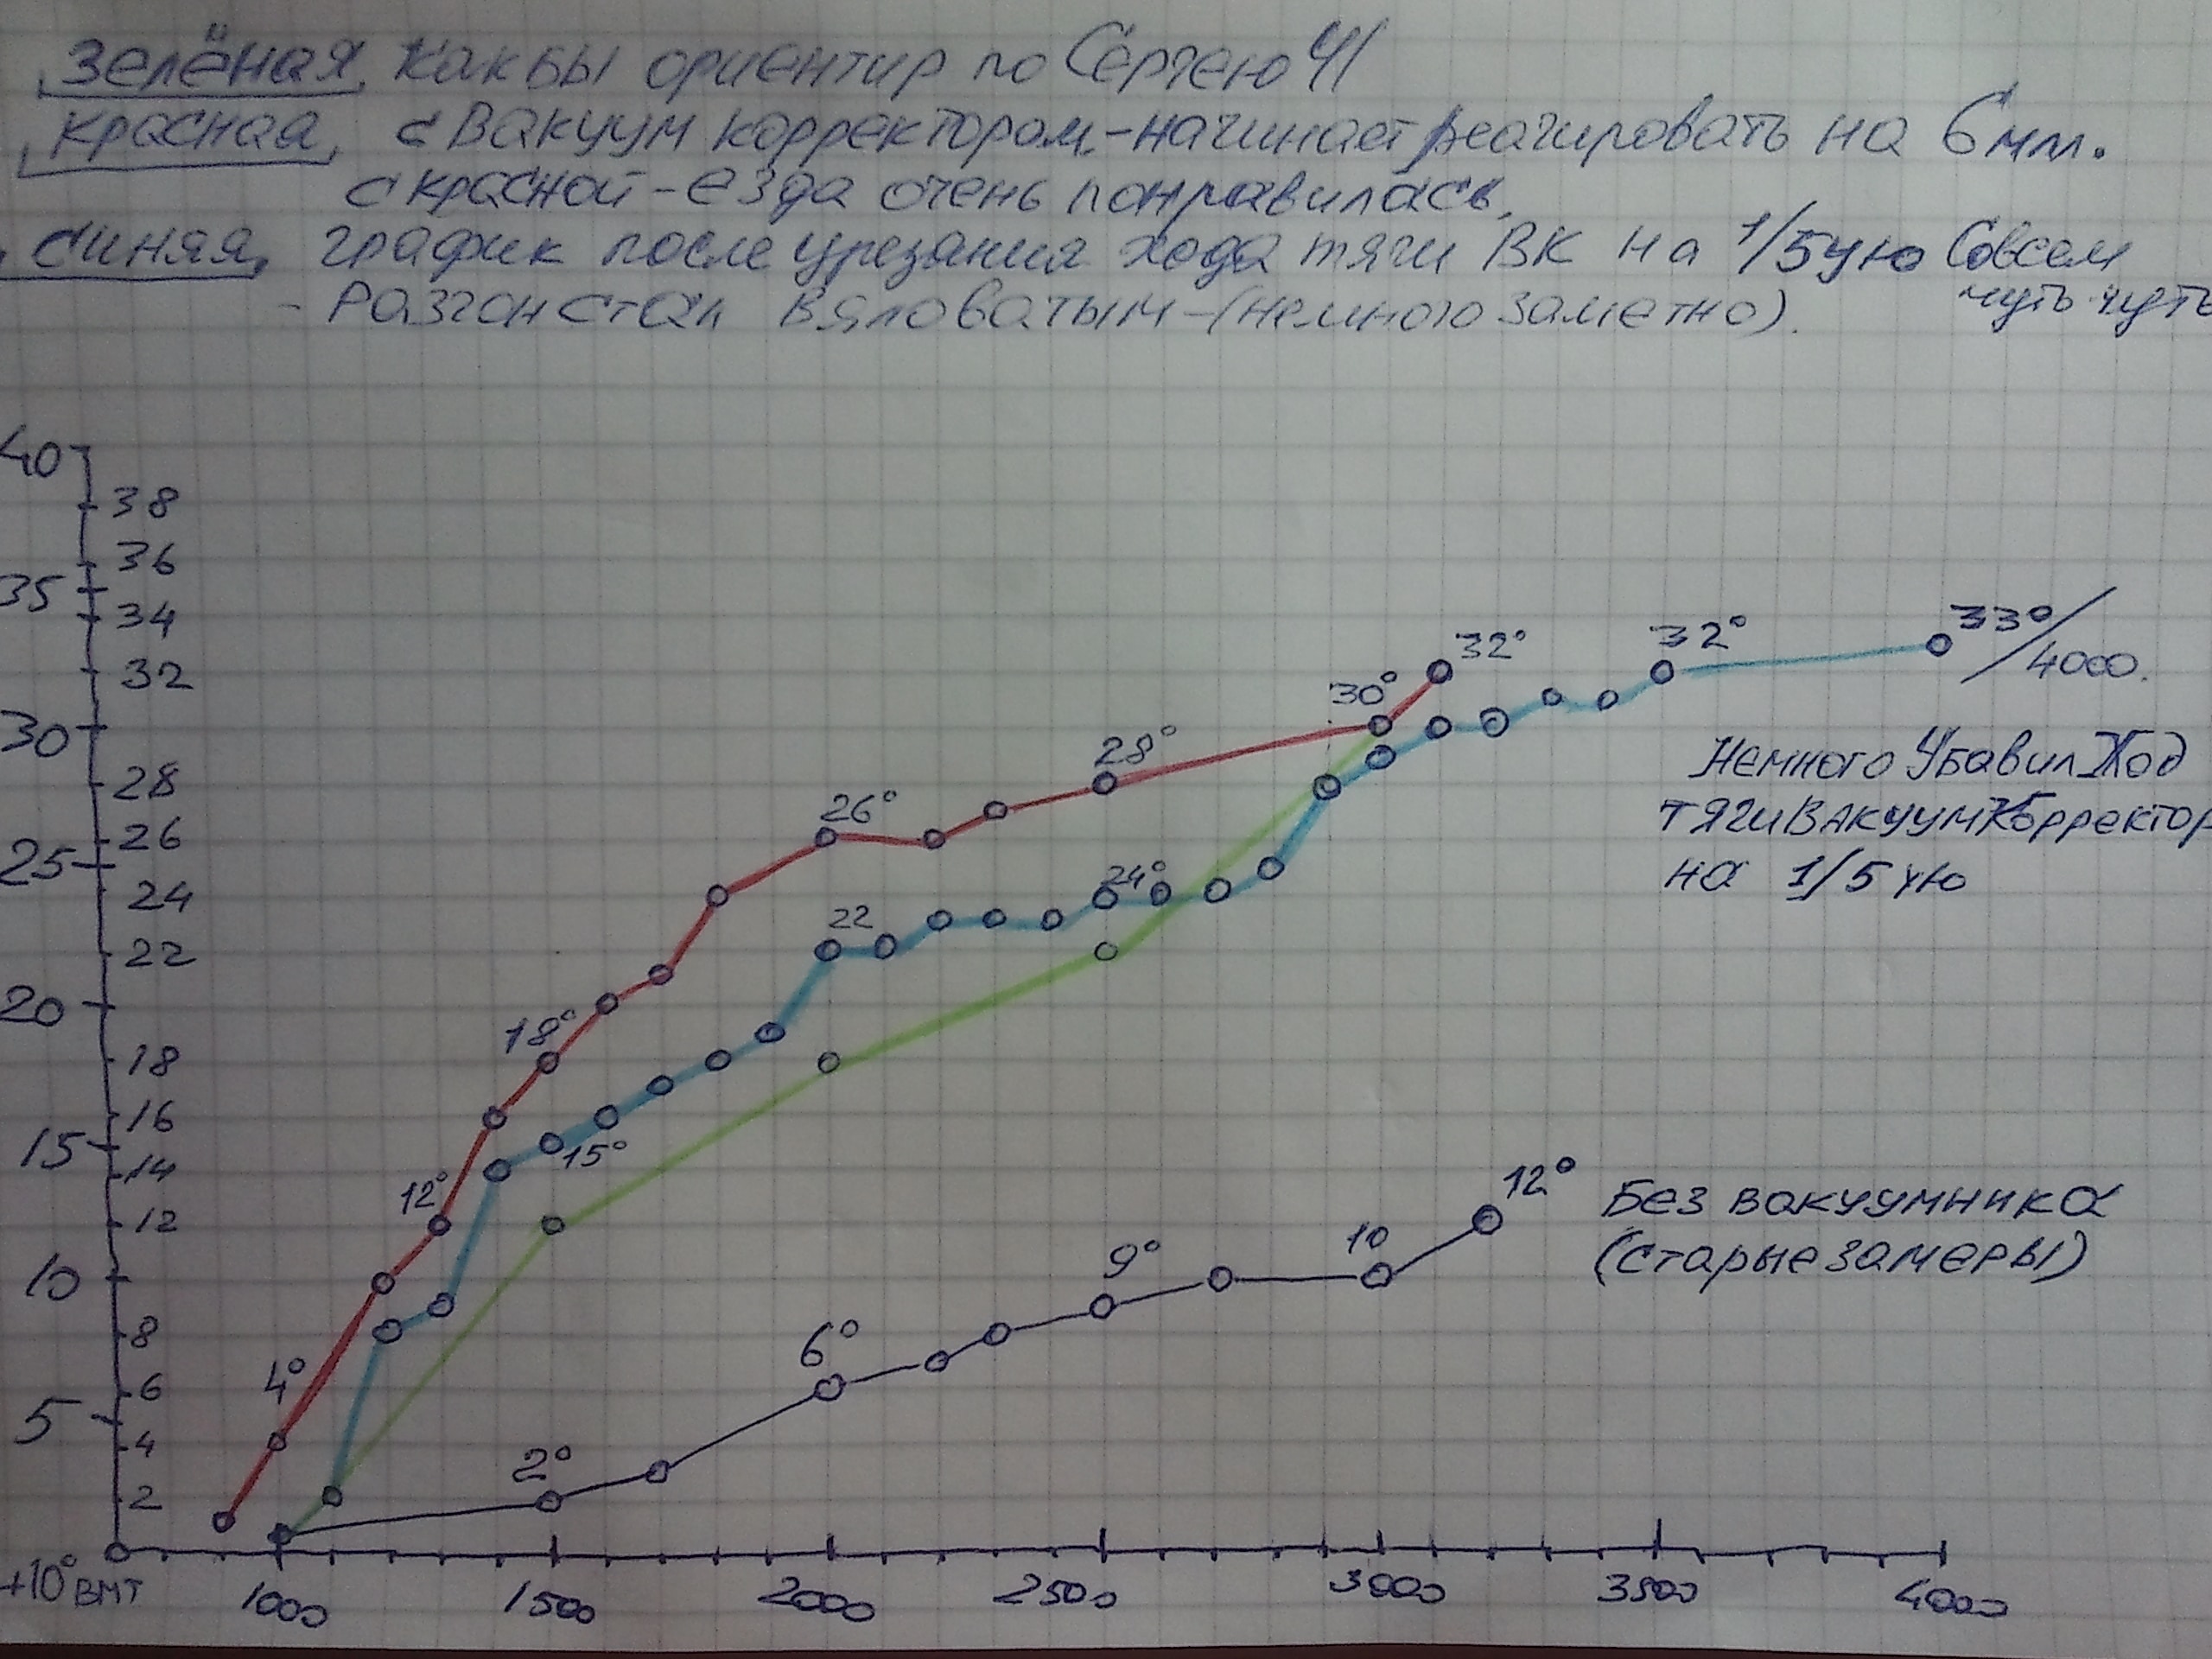 зелёная, как бы ориентир по Сергею Ч1
красная, с Вакуум корректором.-начинает реагировать на 6 мм.
с красной - езда очень понравилась.
синяя, график после урезания хода тяги ВК на 1/5ую Совсем
чуть-чуть
- Разгон стал вяловатым - (немного заметно).
40
38
36
35
34
32
30
28
26
25
24
22
20
18
16
15
14
12
10
8
6
5
4
2
+10° ВМТ
4°
12°
18°
26°
28°
30°
32°
15°
22
24°
32°
33°/4000.
Немного Убавил Ход
тяги Вакуум Корректор
на 1/5ую
2°
6°
9°
10
12°
Без вакуумника
(старые замеры)
1000 1500 2000 2500 3000 3500 4000